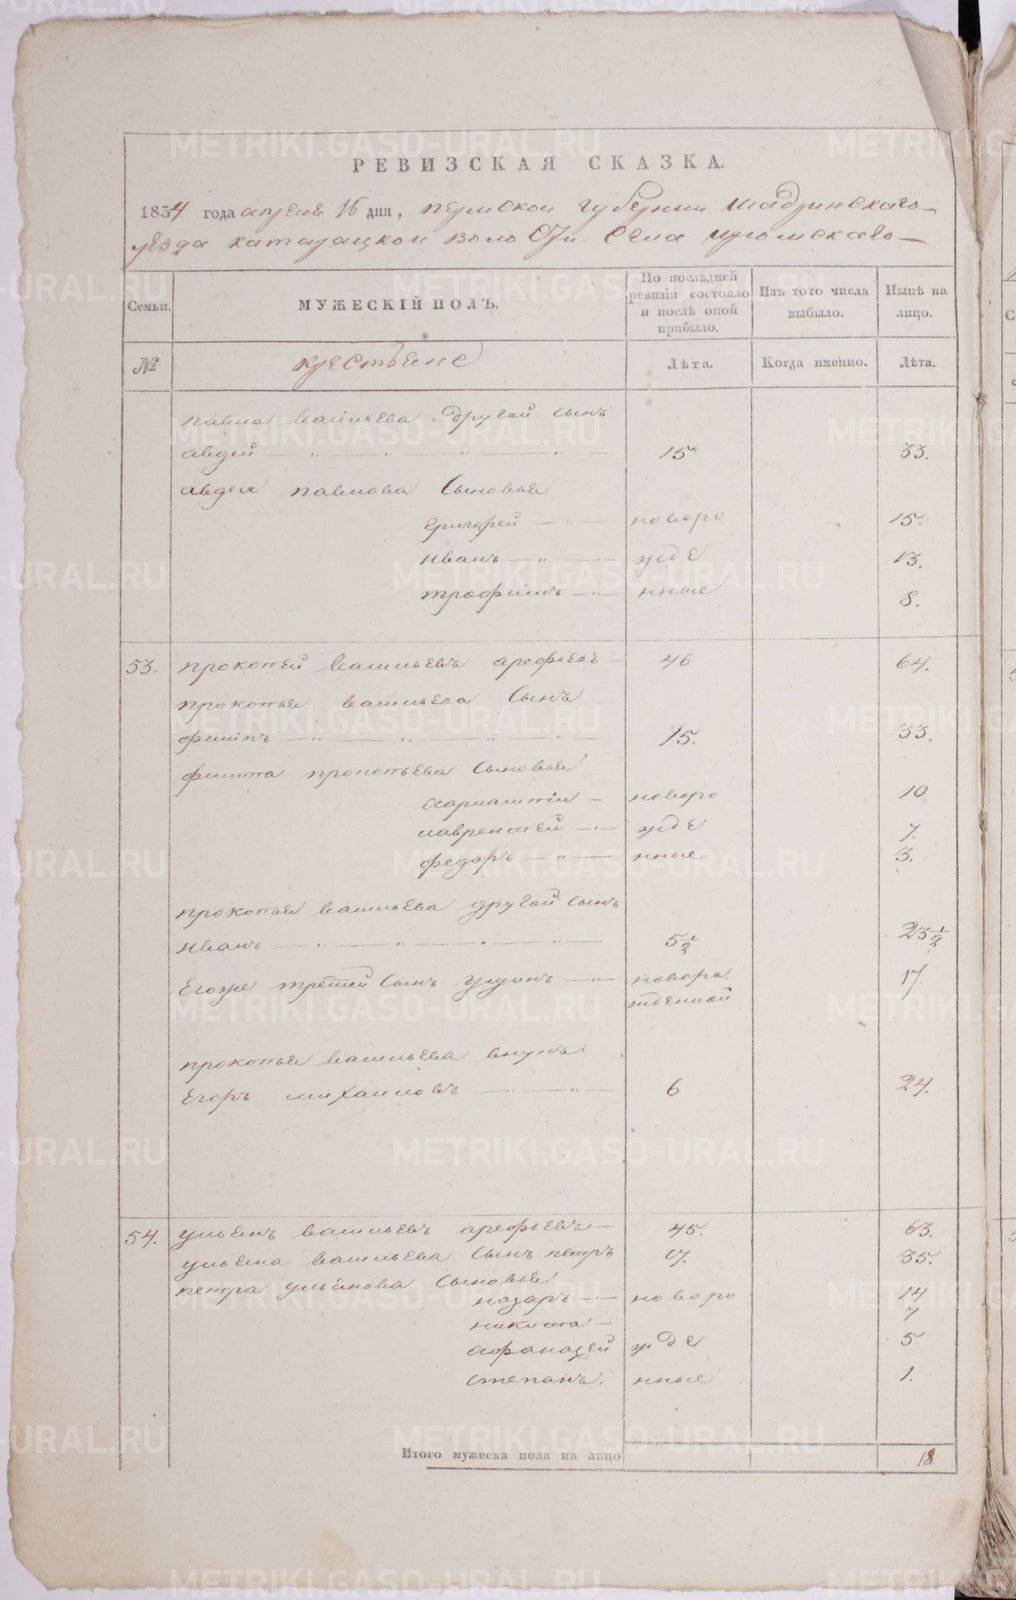 РЕВИЗСКАЯ СКАЗКА.
1834 года апреля 16 дня, пермской губернии шадринскаго
уезда катадацкой волости села
Семьи. МУЖЕСКІЙ ПОЛЪ. По послѣдней ревизіи состояло и послѣ оной прибыло. Изъ того числа выбыло. Нынѣ на лицо.
№ крестьяне Лѣта. Когда именно. Лѣта.
павла васильева другой сынъ
авдей 15 33.
авдея павлова сыновья
григорей новоро 15.
иванъ жде 13.
трофимъ нные 8.
53. прокопей васильевъ арефьевъ 46 64.
прокопья васильева сынъ
филипъ 15. 33.
филипа прокопьева сыновья
новоро 10
лаврентей жде 7.
федоръ нные 3.
прокопья васильева другой сынъ
иванъ 5 1/2 23 1/2
Егоже третей сынъ новоро 17.
жденной
прокопья васильева внукъ
Егоръ михаиловъ 6 24.
54. ульянъ васильевъ арефьевъ 45. 63.
ульяна васильева сынъ петръ 17. 35.
петра ульянова сыновья
назаръ новоро 14
никита 7
афанасей жде 5
степанъ. нные 1.
Итого мужеска пола на лицо 18
METRIKI.GASO-URAL.RU